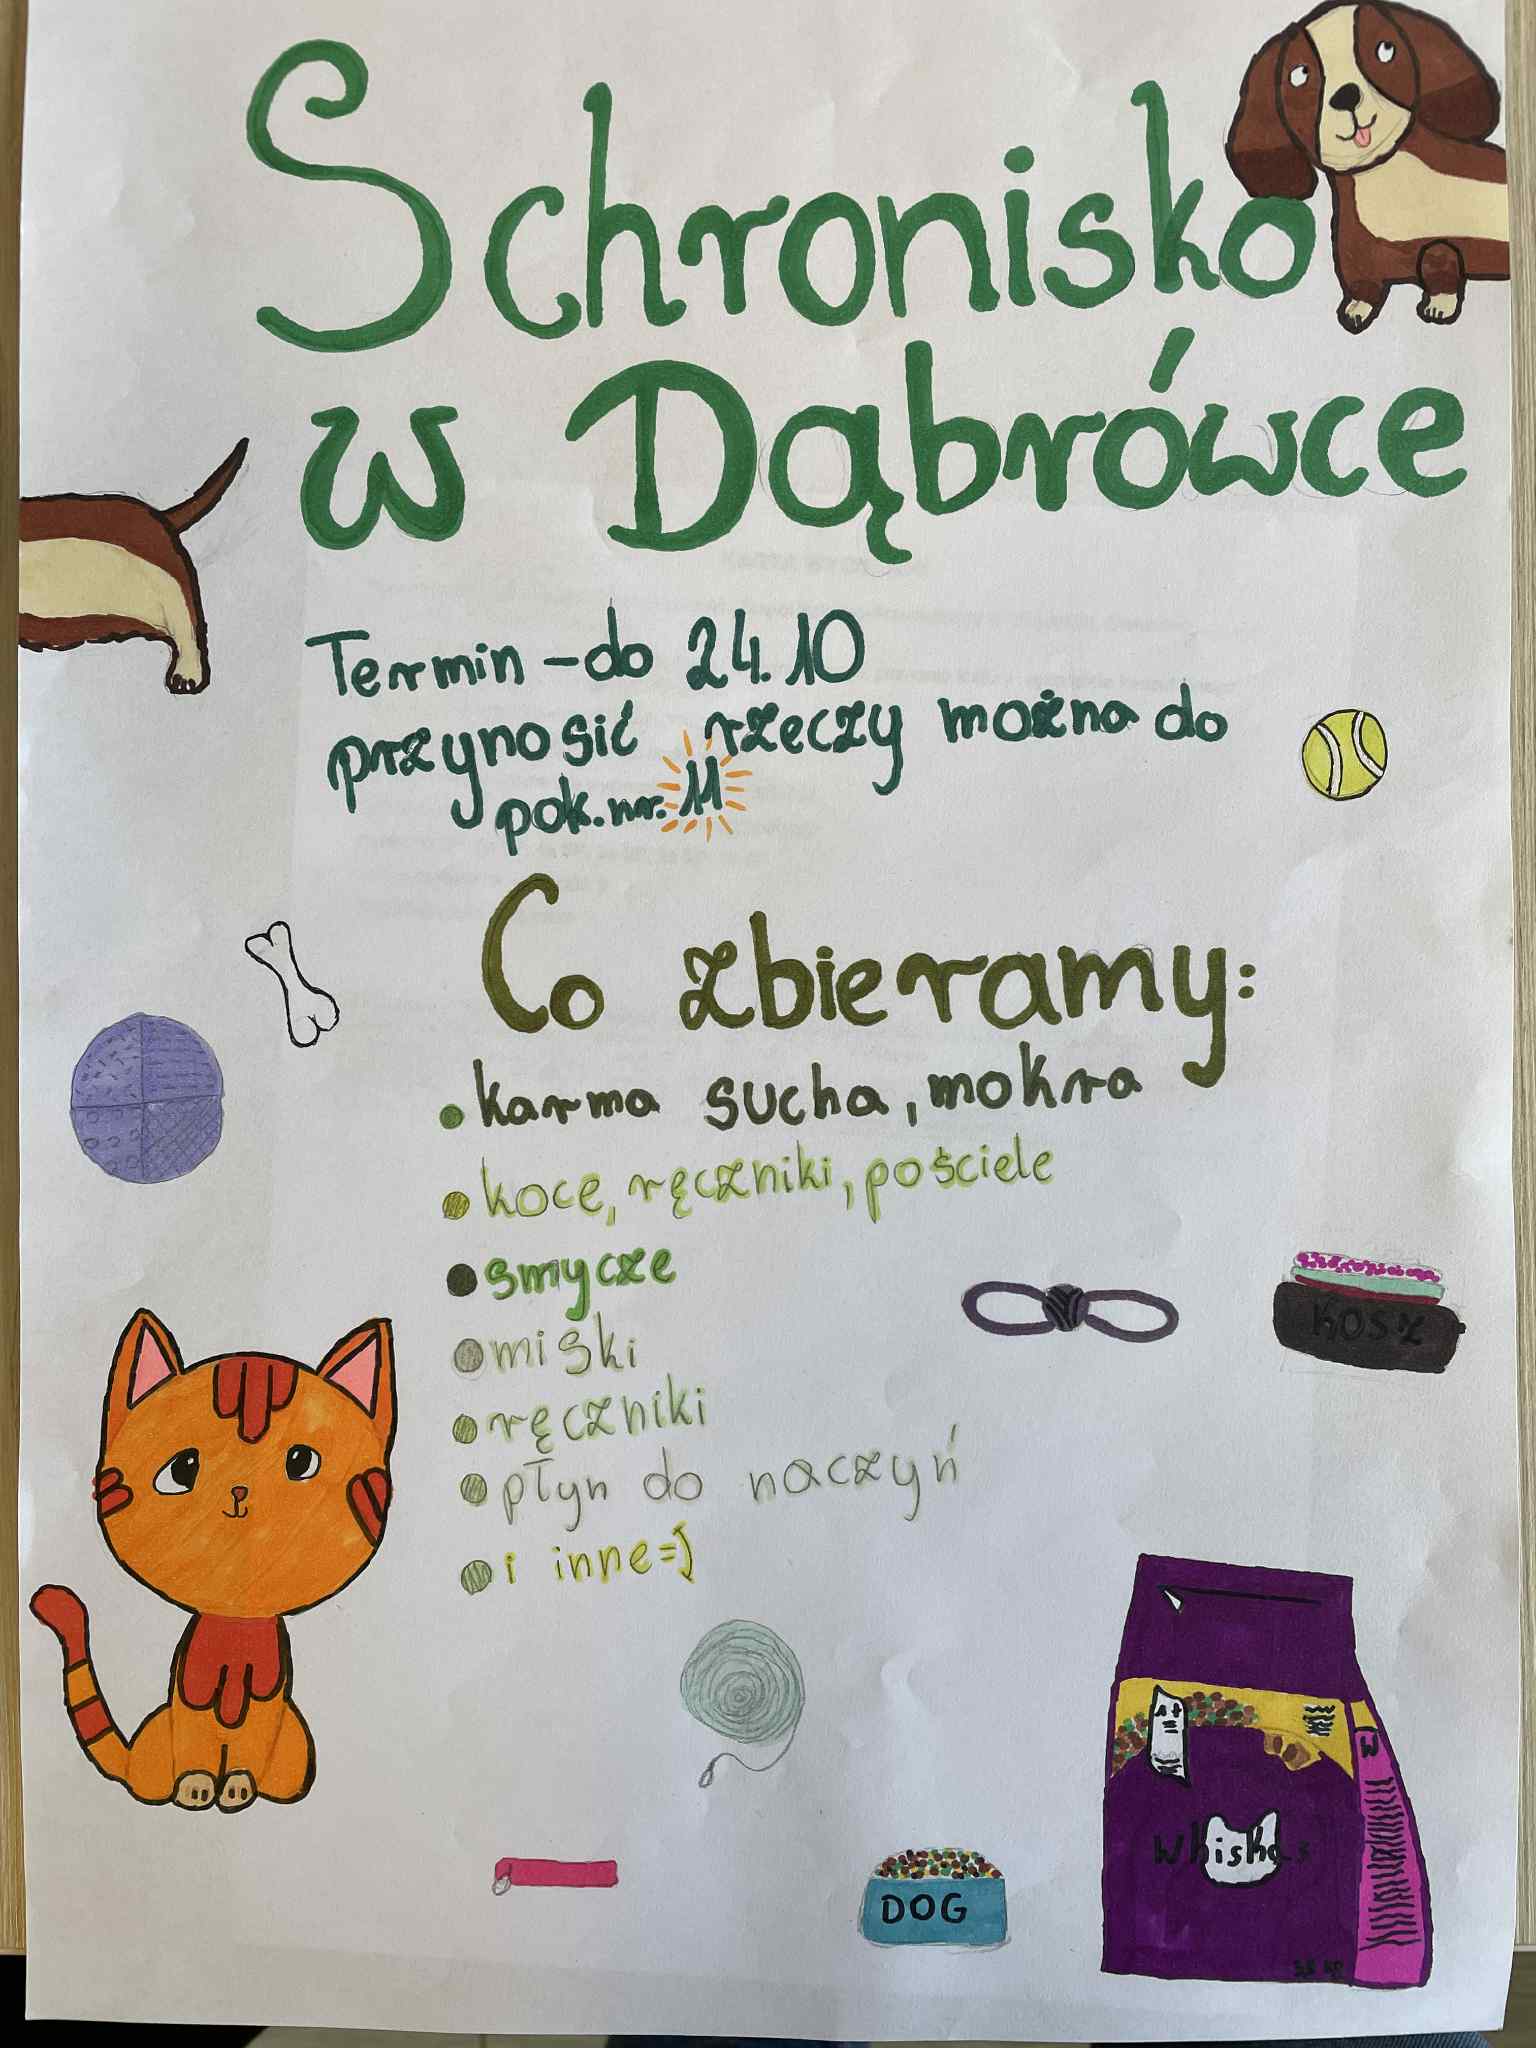 Schronisko
w Dąbrówce
Termin - do 24.10
przynosić rzeczy można do
pok. nr. 11
Co zbieramy:
• karma sucha, mokra
• koce, ręczniki, pościele
• smycze
• miski
• ręczniki
• płyn do naczyń
• i inne =)
KOSZ
1+
W
Whiskas
DOG